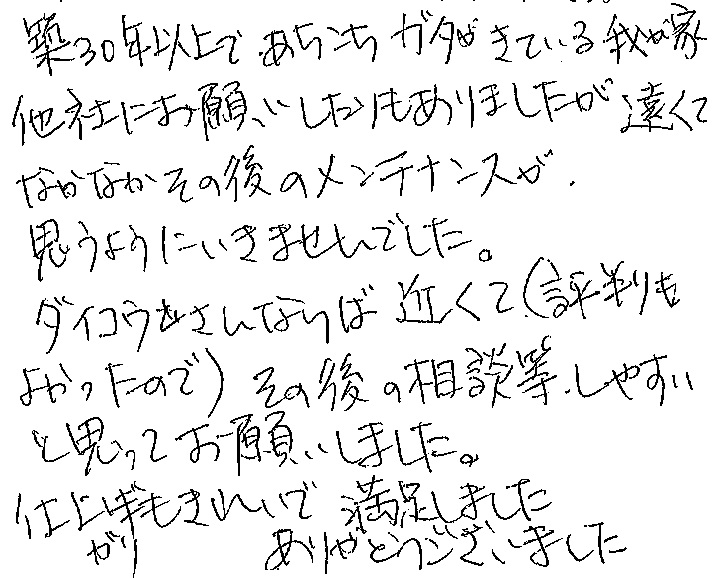 築30年以上で あちこち ガタがきている 我が家
他社にお願いしたりもありましたが 遠くて
なかなかその後のメンテナンスが、
思うようにいきませんでした。
ダイコウさんならば 近くて(評判も
よかったので) その後の相談等、しやすい
と思ってお願いしました。
仕上げもきれいで 満足しました
がり ありがとうございました